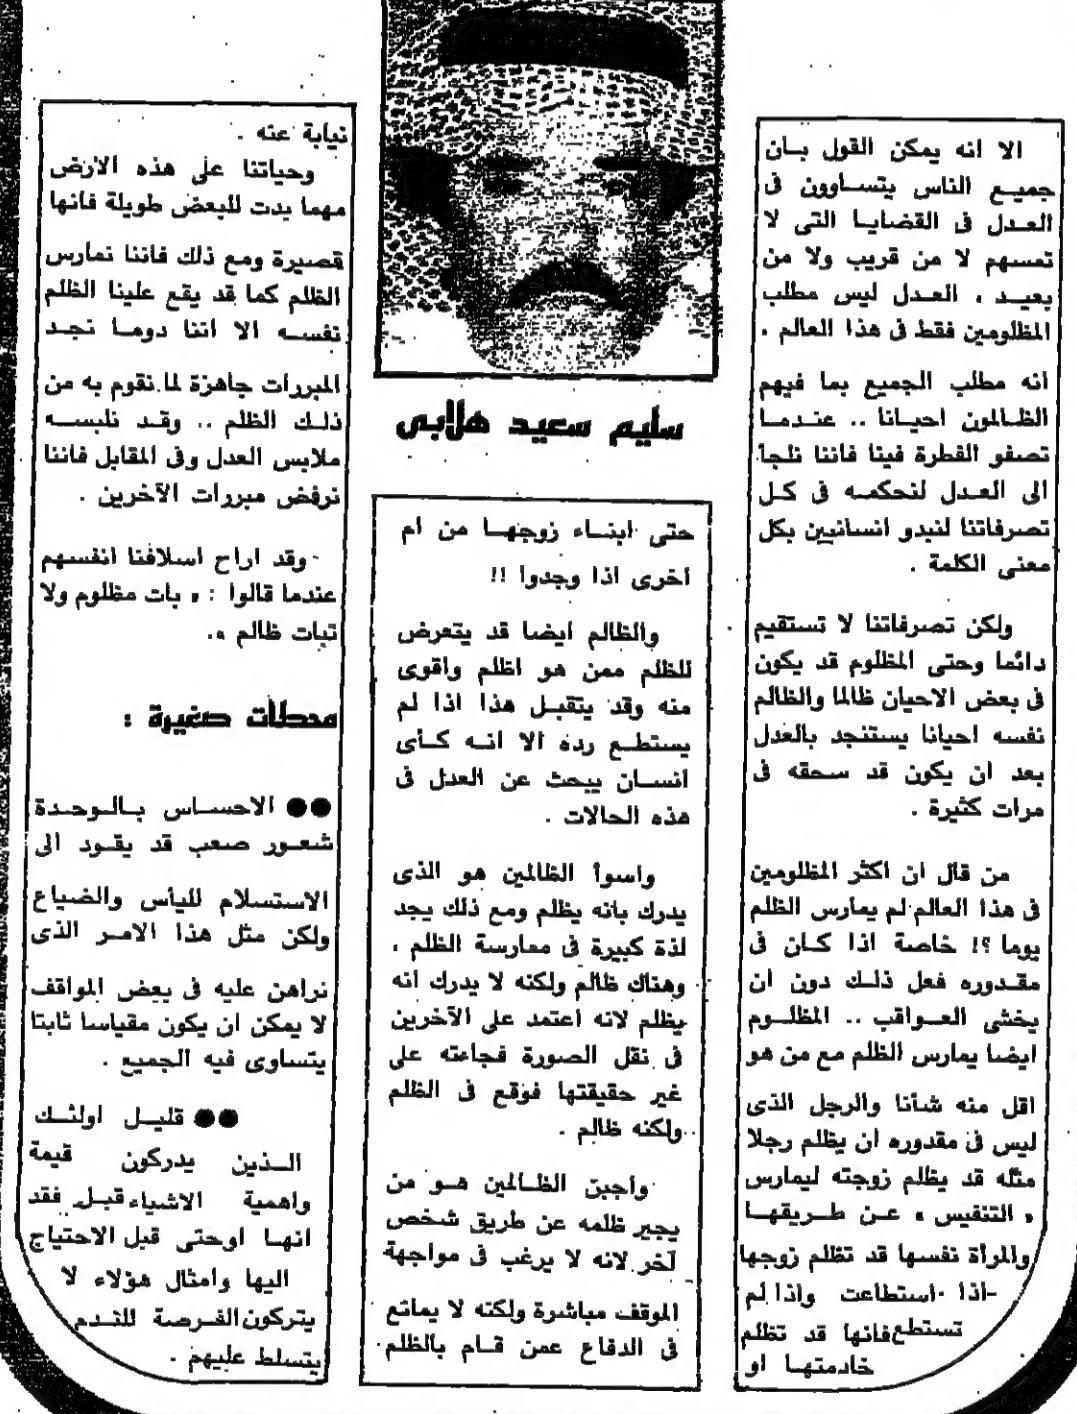 سليم سعيد هلابى
الا انه يمكن القول بـان
جميـع الناس يتسـاوون فى
العـدل فى القضايـا التى لا
تمسهم لا من قريب ولا من
بعيـد ، العـدل ليس مطلب
المظلومين فقط فى هذا العالم .
انه مطلب الجميع بما فيهم
الظـالمون احيـانا .. عنـدمـا
تصفو الفطرة فينا فاننا نلجأ
الى العـدل لنحكمـه فى كـل
تصرفاتنا لنبدو انسانيين بكل
معنى الكلمة .
ولكن تصرفاتنا لا تستقيم
دائما وحتى المظلوم قد يكون
فى بعض الاحيان ظالما والظالم
نفسه احيانا يستنجد بالعدل
بعد ان يكون قد سـحقه فى
مرات كثيرة .
من قال ان اكثر المظلومين
فى هذا العالم لم يمارس الظلم
يوما ؟! خاصة اذا كـان فى
مقـدوره فعل ذلـك دون ان
يخشى العـواقب .. المظلـوم
ايضا يمارس الظلم مع من هو
اقل منه شأنا والرجل الذى
ليس فى مقدوره ان يظلم رجلا
مثله قد يظلم زوجته ليمارس
« التنفيس » عـن طـريقهـا
والمرأة نفسها قد تظلم زوجها
اذا استطاعت واذا لم
تستطع فانها قد تظلم
خادمتهـا او
حتى ابنـاء زوجهـا من ام
اخرى اذا وجدوا !!
والظالم ايضا قد يتعرض
للظلم ممن هو اظلم واقوى
منه وقد يتقبـل هذا اذا لم
يستطـع رده الا انـه كـأى
انسـان يبحث عن العدل فى
هذه الحالات .
واسوأ الظالمين هو الذى
يدرك بانه يظلم ومع ذلك يجد
لذة كبيرة فى ممارسة الظلم ،
وهناك ظالم ولكنه لا يدرك انه
يظلم لانه اعتمد على الآخرين
فى نقل الصورة فجاءته على
غير حقيقتها فوقع فى الظلم
ولكنه ظالم .
وأجبن الظـالمين هـو من
يجير ظلمه عن طريق شخص
آخر لانه لا يرغب فى مواجهة
الموقف مباشرة ولكنه لا يمانع
فى الدفاع عمن قـام بالظلم
نيابة عنه .
وحياتنا على هذه الارض
مهما بدت للبعض طويلة فانها
قصيرة ومع ذلك فاننا نمارس
الظلم كما قد يقع علينا الظلم
نفسـه الا اننا دومـا نجـد
المبررات جاهزة لما نقوم به من
ذلـك الظلم .. وقـد نلبسـه
ملابس العدل وفى المقابل فاننا
نرفض مبررات الآخرين .
وقد اراح اسلافنا انفسهم
عندما قالوا : « بات مظلوم ولا
تبات ظالم ».
محطات صغيرة :
●● الاحسـاس بـالـوحـدة
شعـور صعب قد يقـود الى
الاستسلام لليأس والضياع
ولكن مثل هذا الامـر الذى
نراهن عليه فى بعض المواقف
لا يمكن ان يكون مقياسا ثابتا
يتساوى فيه الجميع .
●● قليـل اولئـك
الـذين يدركون قيمة
واهمية الاشياء قبـل فقد
انهـا اوحتى قبل الاحتياج
اليها وامثال هؤلاء لا
يتركون الفـرصة للنـدم
يتسلط عليهم .